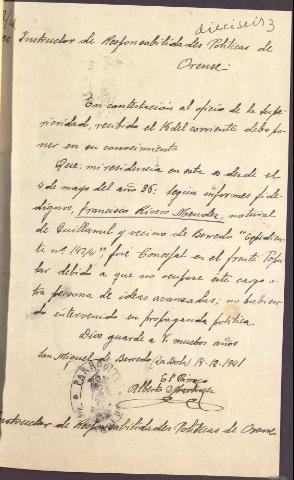 dieciseis 3
Instructor de Responsabilidades Politicas de
Orense:
En contestación al oficio de la Supe-
rioridad, recibido el 16 del corriente debo po-
ner en su conocimiento
Que: mi residencia en esta es desde el
4 de mayo del año 36: según informes fide-
dignos, Francisco Rivero Mendez, natural
de Guillamil y vecino de Berredo "Expedien-
te nº 142/41" fué Concejal en el frente Popu-
lar debido a que no ocupare este cargo o-
tra persona de ideas avanzadas; no habien-
do intervenido en propaganda politica.
Dios guarde a V muchos años
San Miguel de Berredo (La Bola) 18-12-1941
El Párroco
Alberto
Instructor de Responsabilidades Politicas de Orense